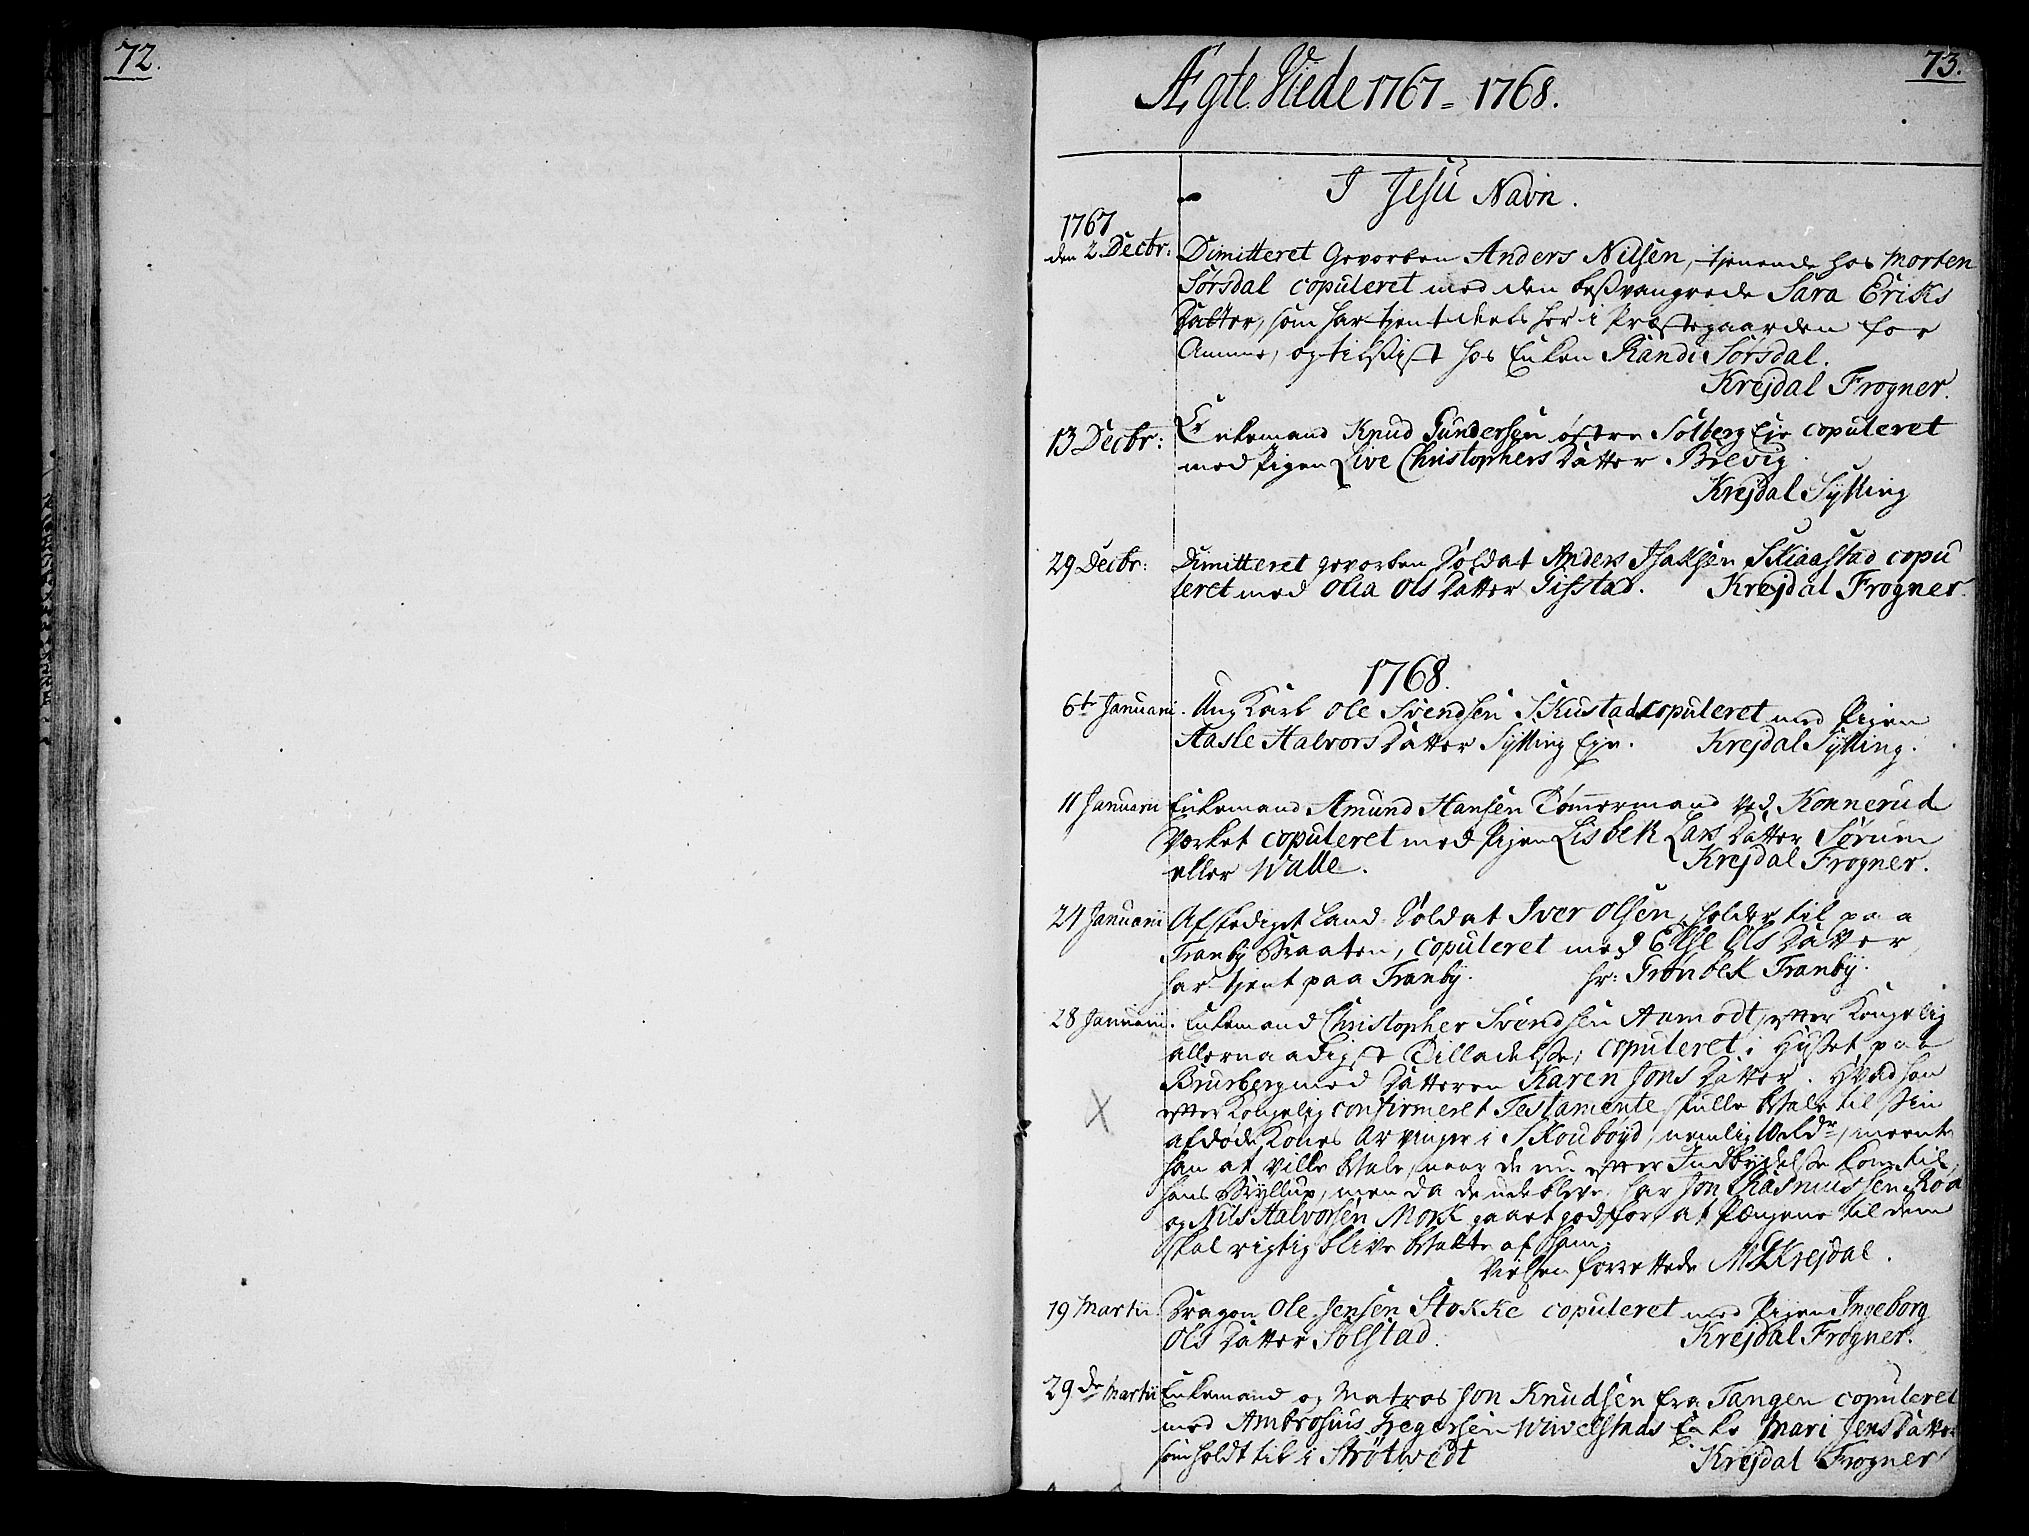 72.
73.
Ægte Viede 1767 = 1768.
I Jesu Navn.
1767
den 2 Decbr: Dimitteret Gevorben Anders Nilsen, tjenende hos Morten
Sørsdal copuleret med den besvangrede Sara Eriks
Datter, som har tjent deels her i Præstegaarden for
Amme, og tilsidst hos Enken Randi Sørsdal.
Krejdal Frogner.
13 Decbr: Enkemand Knud Gundersen østre Solberg Eje copuleret
med Pigen Live Christophers Datter Brevig.
Krejdal Sylling
29 Decbr: Dimitteret gevorben Soldat Anders Isaksen Skiaastad copu
leret med Olia Ols Datter Gifstad. Krejdal Frogner.
1768.
6te Januarii. Ung Karl Ole Svendsen Skustad copuleret med Pigen
Aasle Halvors Datter Sylling Eje. Krejdal Sylling.
11 Januarii Enkemand Amund Hansen Tømmermand ved Konnerud
Værket copuleret med Pigen Lisbek Lars Datter Sørum
eller Walle. Krejdal Frogner.
24 Januarii Afskediget Land-Soldat Iver Olsen, holder til paa
Tranby Braaten, copuleret med Else Ols Datter
har tjent paa Tranby. hr: Grønbek Tranby.
28 Januarii. Enkemand Christopher Svendsen Aamodt, efter Kongelig
allernaadigst Tilladelse, copuleret i Huset paa
Brurberg med Datteren Karen Jons Datter. Hvad han
efter Kongelig confirmeret Testamente skulle betale til sin
afdøde Kones Arvinger i Skouboyd, nemlig Rdr, meente
han at ville betale, naar de nu efter Indbydelse kom til
hans Bryllup, men da de udebleve, har Jon Rasmussen Roa
og Nils Halvorsen Mork gaaet god for, at Pengene til dem
skal rigtig blive betalte af ham.
Vielsen forrettede M Krejdal.
19 Martii Dragon Ole Jensen Stokke copuleret med Pigen Ingeborg
Ols Datter Solstad. Krejdal Frogner.
29de Martii Enkemand og Matros Jon Knudsen fra Tangen copuleret
med Ambrosius Gregersen Wivelstads Enke Mari Jens Datter
som holdt til i Strøtwedt Krejdal Frogner